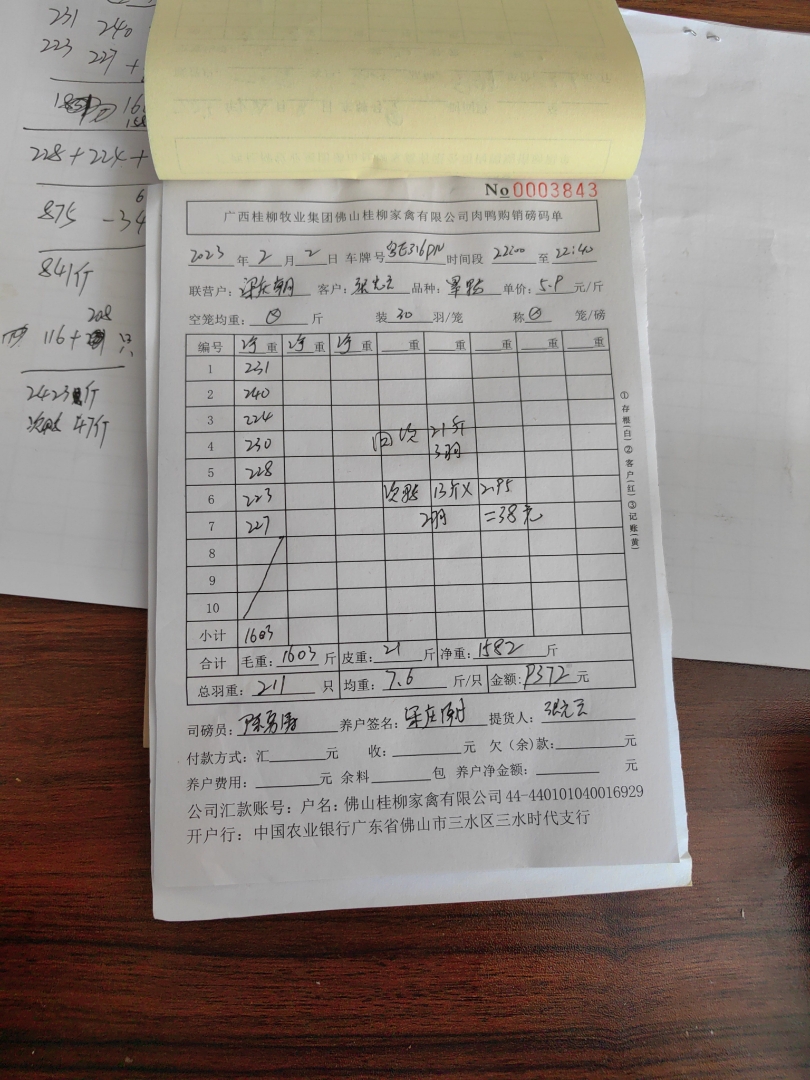 231 240
223 227 +
228 + 224 +
875 - 34
841斤
208
116 +
只
2423斤
47斤
No 0003843
广西桂柳牧业集团佛山桂柳家禽有限公司肉鸭购销磅码单
2023年2月2日 车牌号 粤E316PN 时间段 22:00 至 22:40
联营户: 客户: 张光云 品种: 单价: 5.9 元/斤
空笼均重: 0 斤 装 30 羽/笼 称 0 笼/磅
编号 净重 净重 净重 重 重 重 重 重
1 231
2 240
3 224
4 230 回次 21斤
3羽
5 228
6 223 次鸭 13斤× 2.95
7 227 2羽 =38元
8
9
10
小计 1603
合计 毛重: 1603 斤 皮重: 21 斤 净重: 1582 斤
总羽重: 211 只 均重: 7.6 斤/只 金额: 9372 元
司磅员: 养户签名: 提货人: 张光云
付款方式: 汇 元 收: 元 欠(余)款: 元
养户费用: 元 余料 包 养户净金额: 元
公司汇款账号: 户名: 佛山桂柳家禽有限公司 44-440101040016929
开户行: 中国农业银行广东省佛山市三水区三水时代支行
①存根(白)②客户(红)③记账(黄)